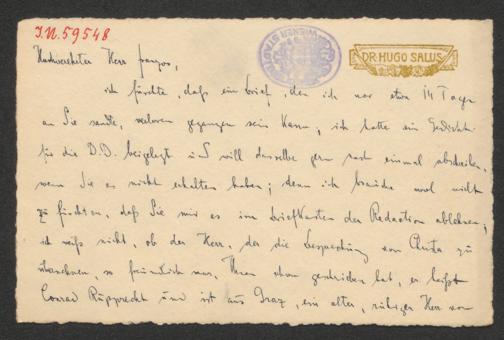 I.N. 59548
DR. HUGO SALUS
Hochverehrter Herr Franzos,
ich fürchte, daß ein Brief, den ich vor etwa 14 Tagen
an Sie sandte, verloren gegangen sein kann; ich hatte ein Gedicht
für die D.D. beigelegt u. will dasselbe gern noch einmal abschreiben,
wenn Sie es nicht erhalten haben; denn ich brauche wol nicht
zu fürchten, daß Sie mir es im Briefkasten der Redaction ablehnen;
ich weiß nicht, ob der Herr, der die Besprechung von zu
übernehmen, so freundlich war, Ihnen schon geschrieben hat, er heißt
Conrad Rupprecht und ist aus Graz, ein alter, ruhiger Herr von